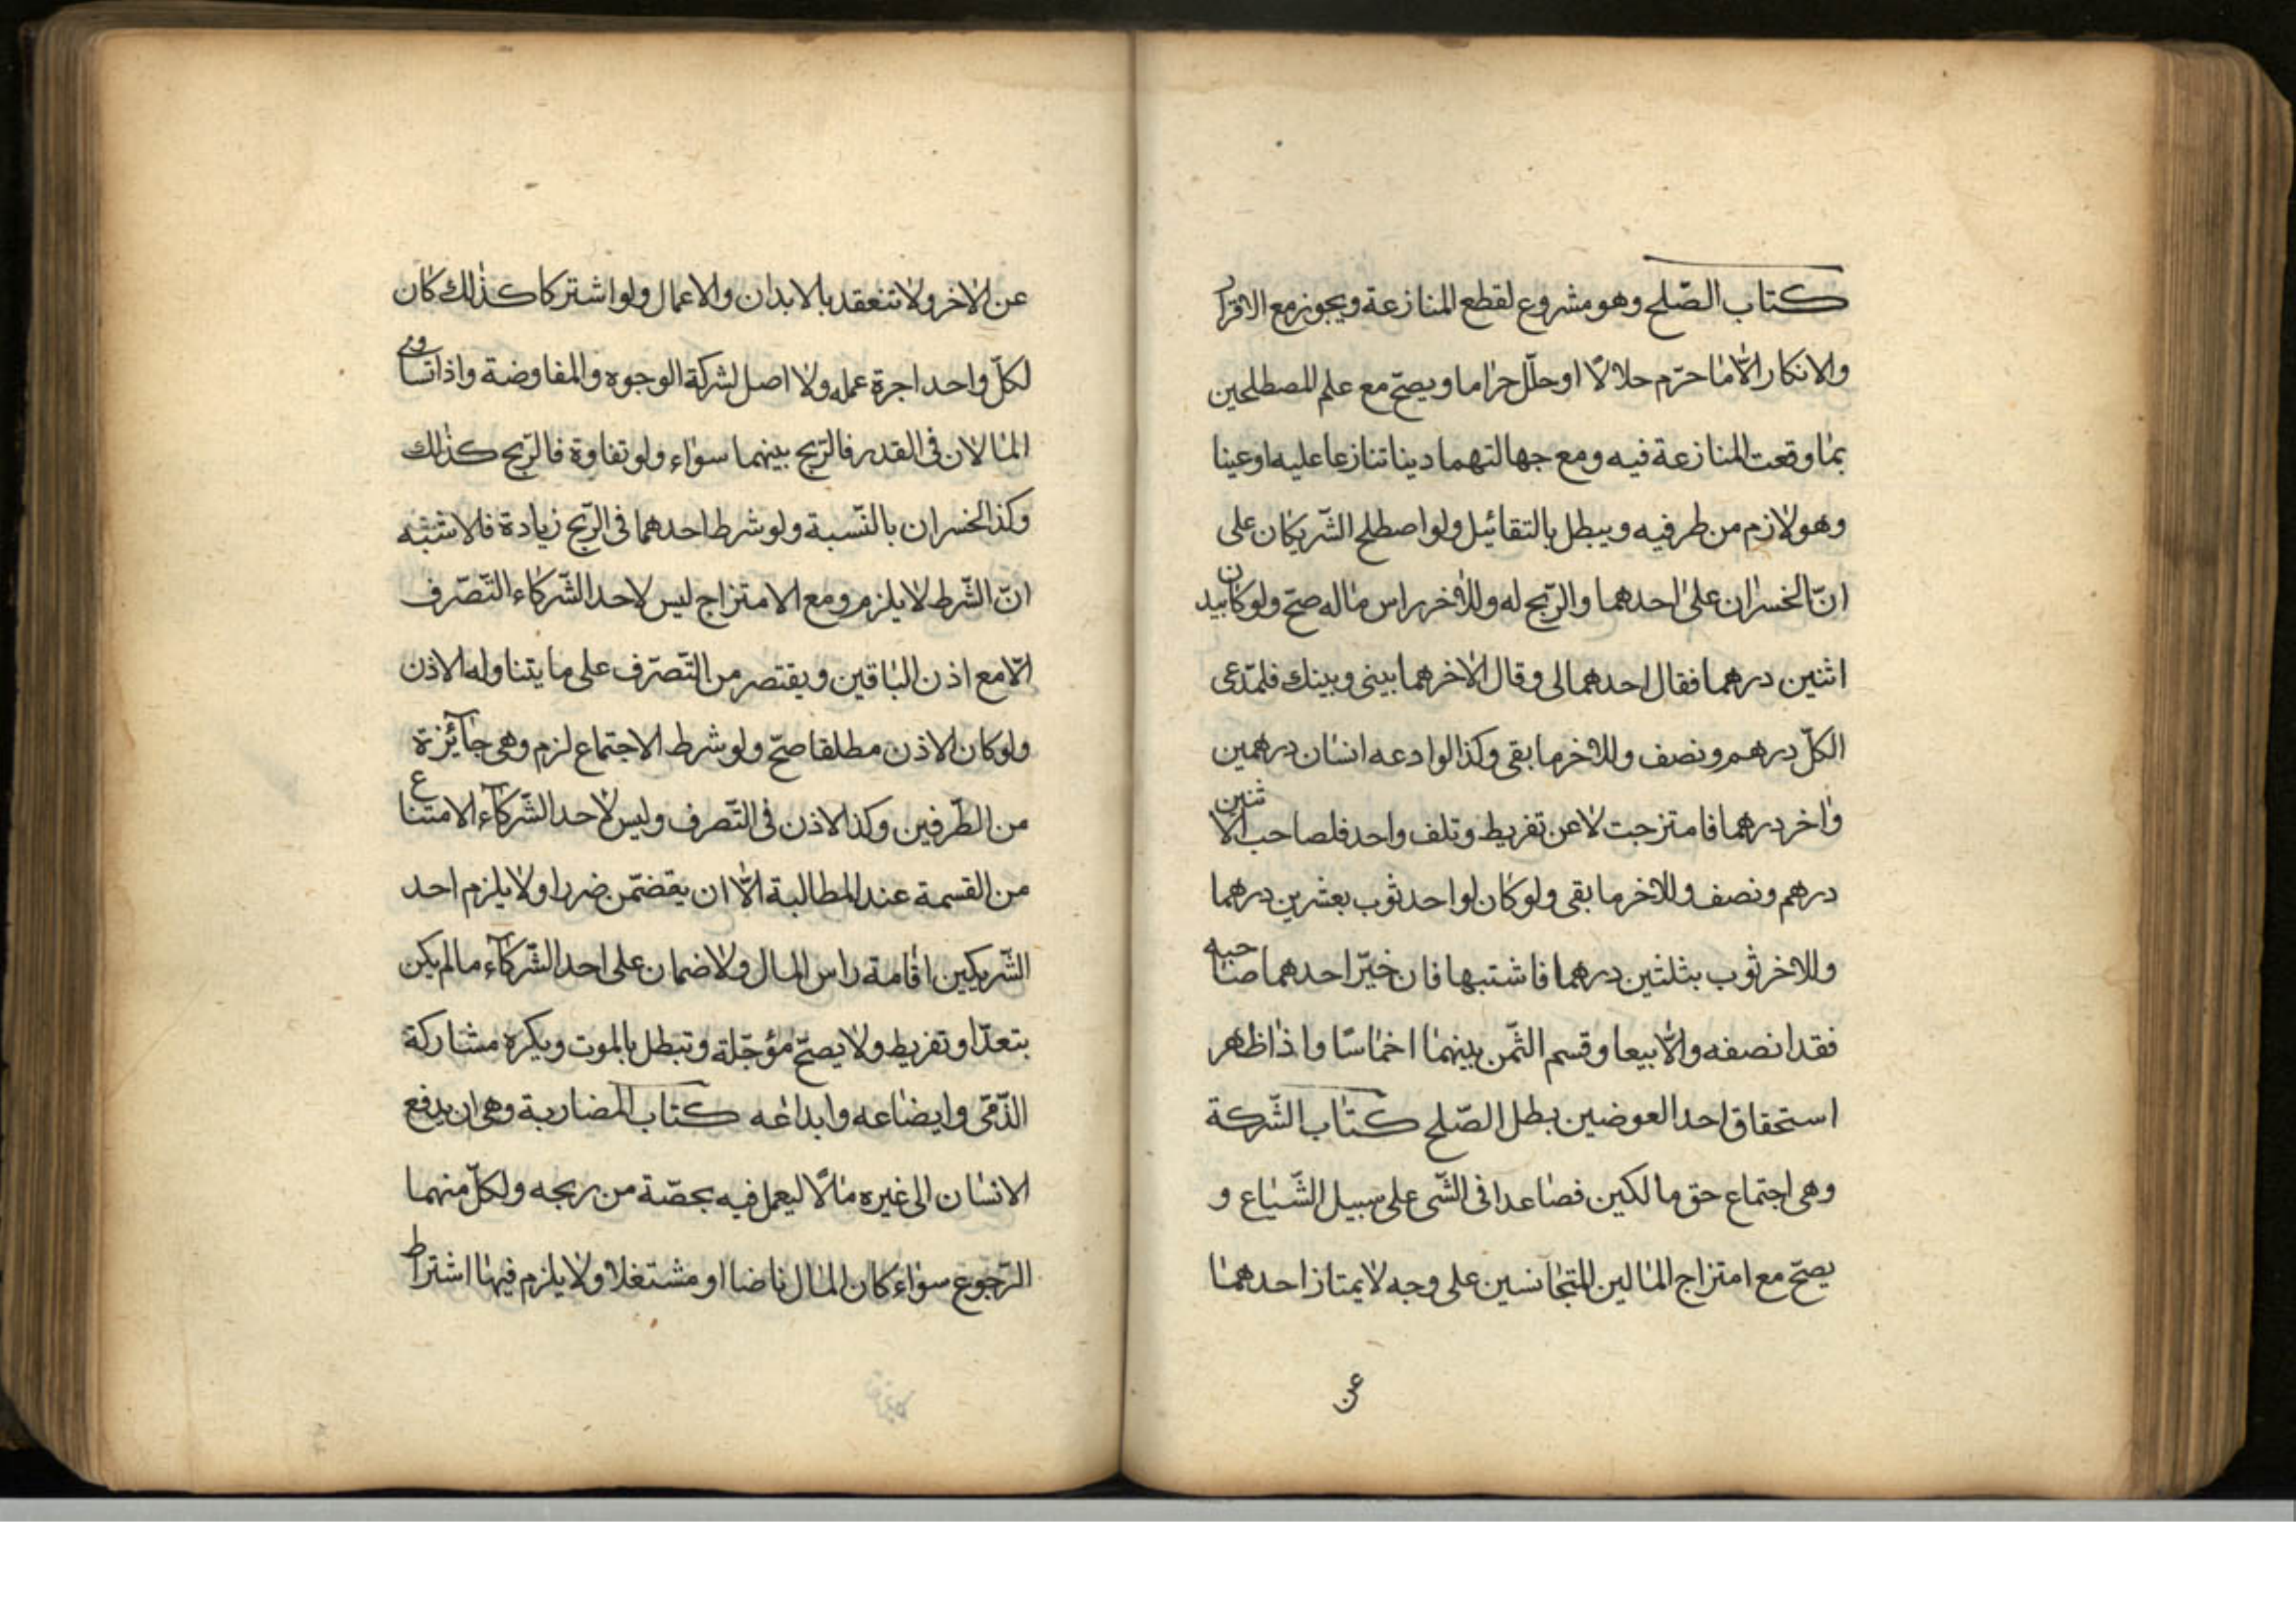 كتاب الصّلح وهو مشروع لقطع المنازعة ويجوز مع الاقرار
والانكار الّا ما حرّم حلالًا او حلّل حراما ويصحّ مع علم المصطلحين
بما وقعت المنازعة فيه ومع جهالتهما دينا تنازعا عليه او عينا
وهو لازم من طرفيه ويبطل بالتقائيل ولو اصطلح الشّريكان على
انّ الخسران على احدهما والرّبح له وللاخر راس ماله صحّ ولو كان بيد
اثنين درهما فقال احدهما لى وقال الاخر هما بينى وبينك فلمدّعى
الكلّ درهم ونصف وللاخر ما بقى وكذا لو ادعه انسان درهمين
واخر درهما فامتزجت لا عن تفريط وتلف واحد فلصاحب الاثنين
درهم ونصف وللاخر ما بقى ولو كان لواحد ثوب بعشرين درهما
وللاخر ثوب بثلثين درهما فاشتبها فان خيّر احدهما صاحبه
فقد انصفه والّا بيعا وقسم الثّمن بينهما اخماسًا واذا ظهر
استحقاق احد العوضين بطل الصّلح كتاب الشّركة
وهى اجتماع حق مالكين فصاعدا فى الشّى على سبيل الشّياع و
يصحّ مع امتزاج المالين المتجانسين على وجه لا يمتاز احدهما
عن
عن الاخر ولا تنعقد بالابدان والاعمال ولو اشتركا كذلك كان
لكلّ واحد اجرة عمله ولا اصل لشركة الوجوه والمفاوضة واذا تساوى
المالان فى القدر فالرّبح بينهما سواء ولو تفاوة فالرّبح كذلك
وكذا الخسران بالنّسبة ولو شرط احدهما فى الرّبح زيادة فلاشبه
انّ الشّرط لا يلزم ومع الامتزاج ليس لاحد الشّركاء التّصرّف
الّا مع اذن الباقين ويقتصر من التّصرّف على ما يتناوله الاذن
ولو كان الاذن مطلقا صحّ ولو شرط الاجتماع لزم وهى جآئزة
من الطّرفين وكذا الاذن فى التّصرف وليس لاحد الشّركآء الامتناع
من القسمة عند المطالبة الّا ان يقضمّن ضررا ولا يلزم احد
الشّريكين اقامة راس المال ولا ضمان على احد الشّركآء ما لم يكن
بتعدّ او تفريط ولا يصحّ مؤجّلة وتبطل بالموت ويكره مشاركة
الذّمّى وابضاعه وابداعه كتاب المضاربة وهى ان يدفع
الانسان الى غيره مالًا ليعمل فيه بحصّة من ربحه ولكلّ منهما
الرّجوع سواء كان المال ناضا او مشتغلا ولا يلزم فيها اشتراط